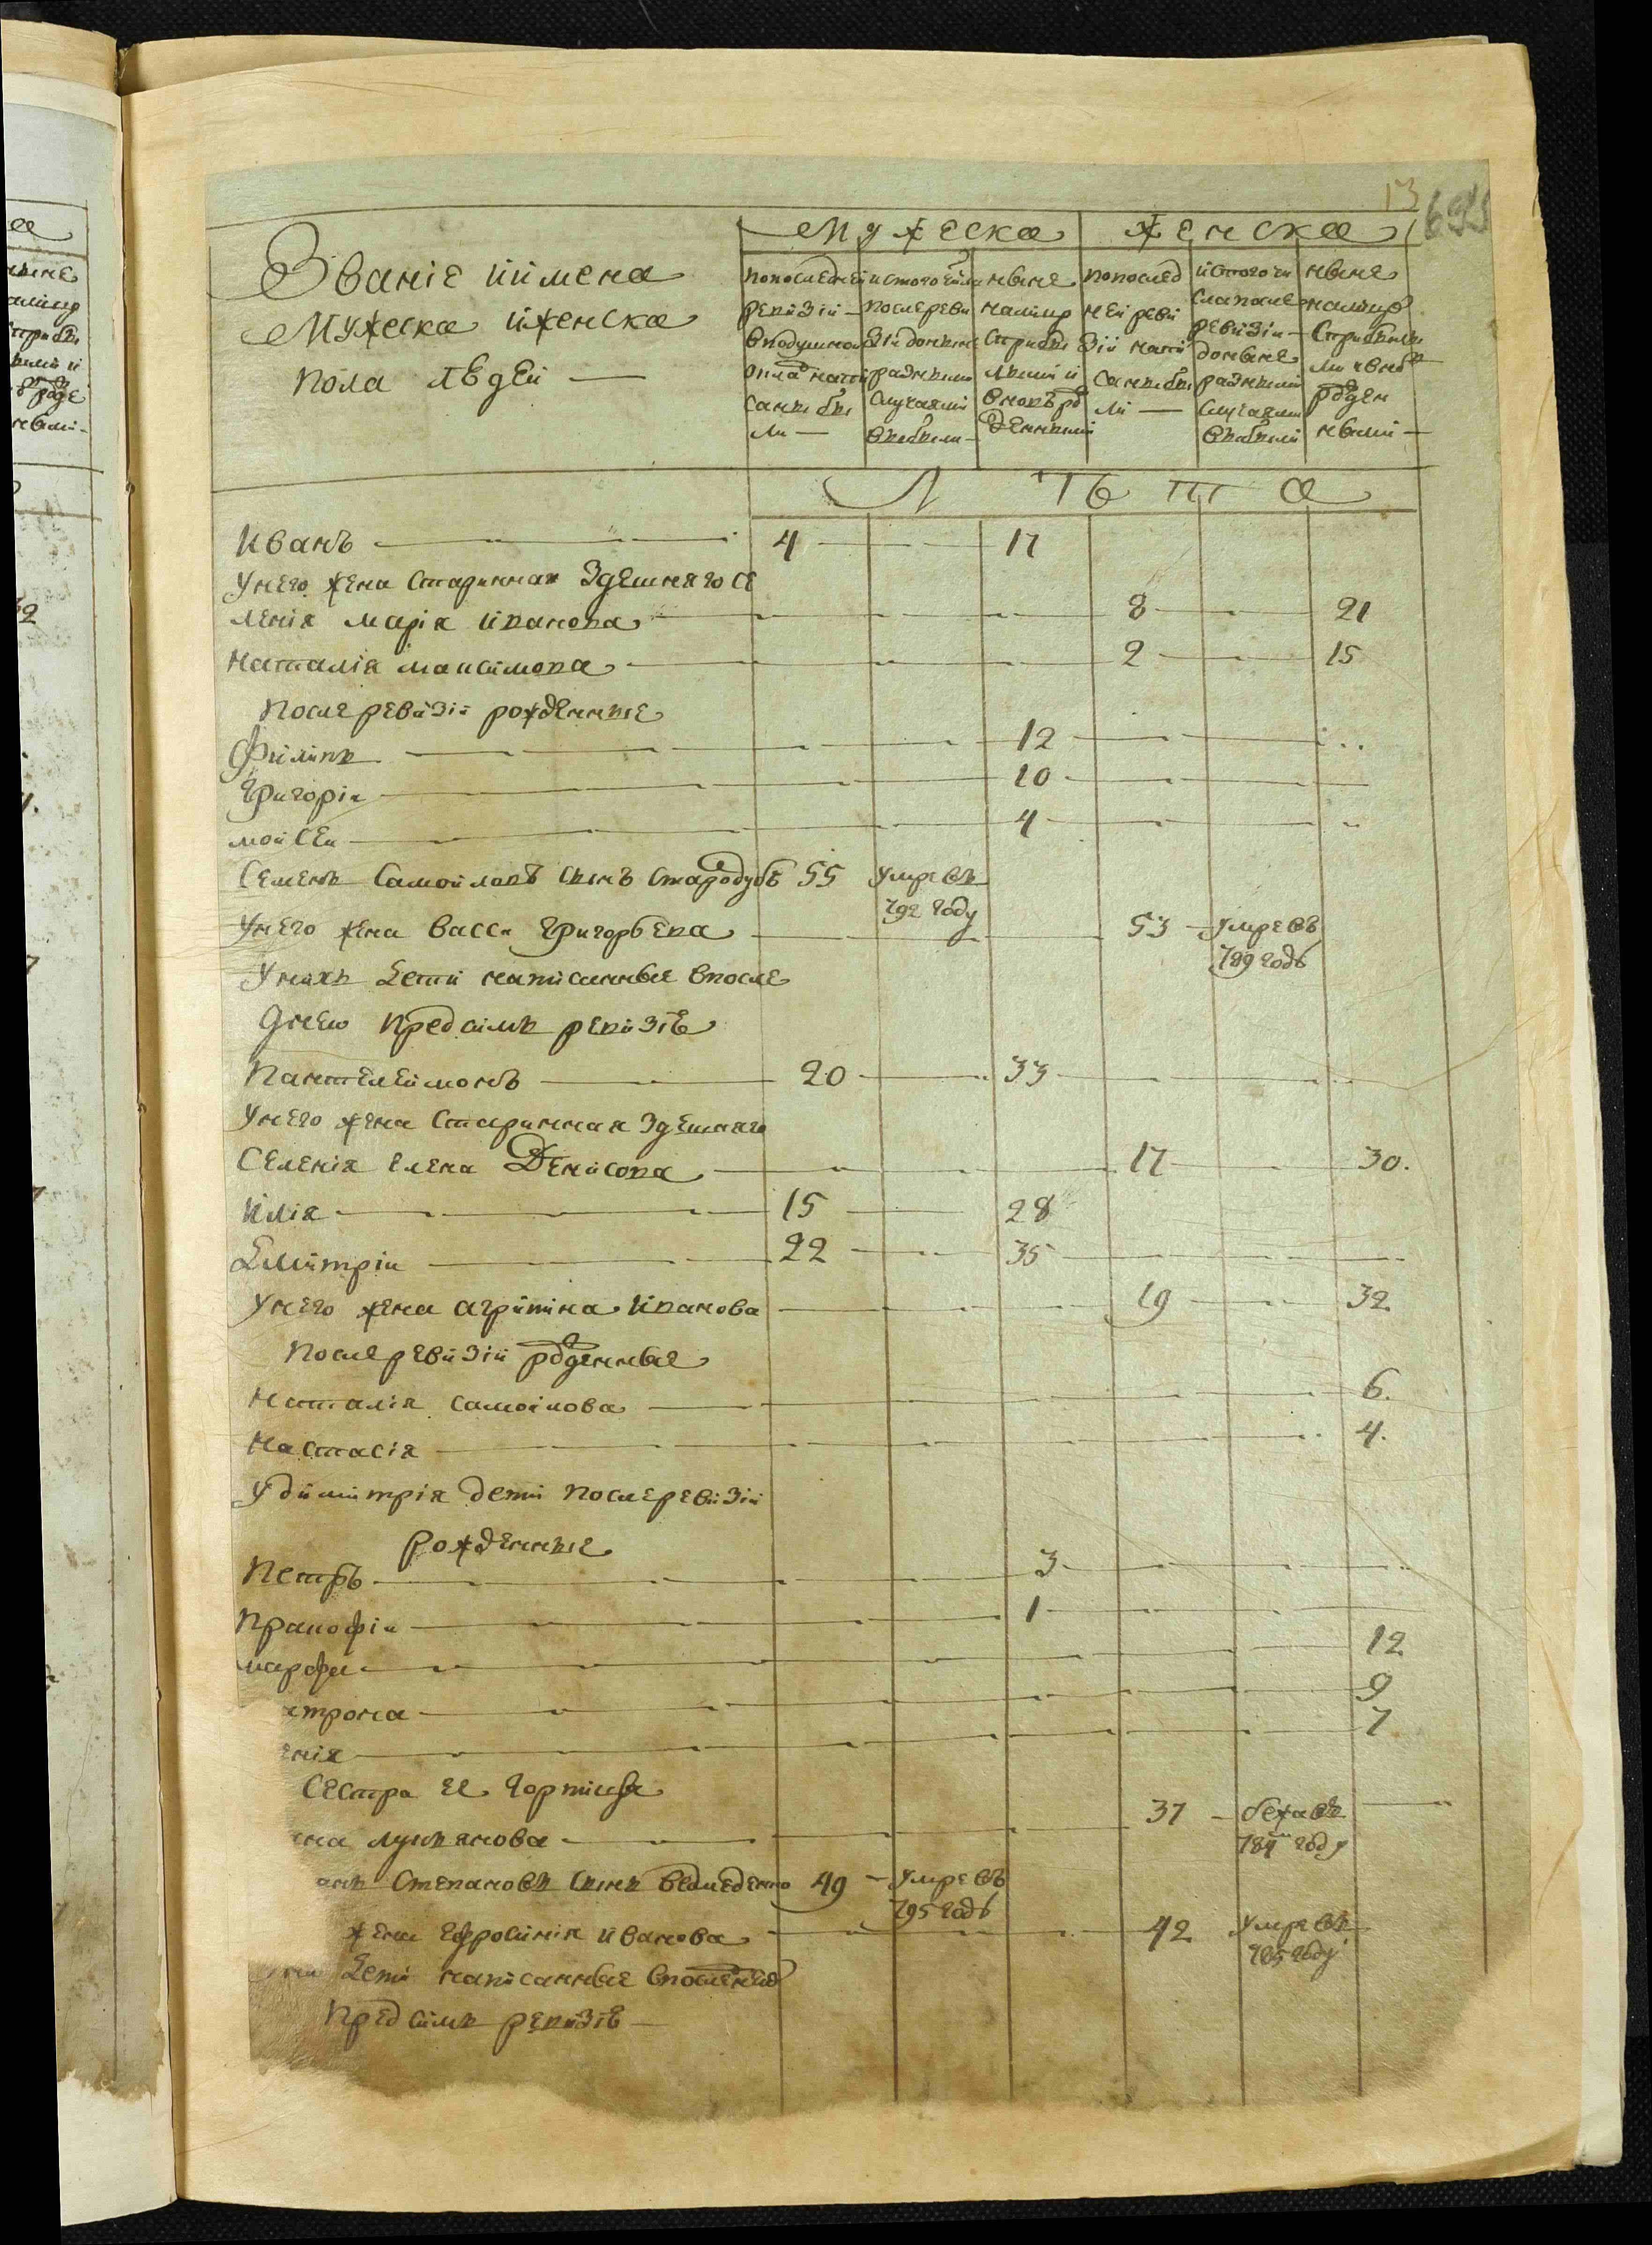 13
Званіе иимена
Мужеска иженска
пола людей —
Мужеска Женска
попоследней ревизіи вподушной окла написаны были —
истого числа послеревизіи доныне разными случаями выбыли —
ныне налицо сприбылыми и вновь рожденными
попоследней ревизіи написаны были —
истого числа после ревизіи — доныне разными случаями выбыли
ныне налицо сприбылыми и вновь рожденными —
Лѣта
Иванъ 4 17
Унего жена старинная здешняго се
ленія марія иванова 8 21
Наталія максимова 2 15
После ревизіи рожденные
Филипъ 12
Григоріи 10
моисеи 4
Семенъ Самоиловъ сынъ Стародубъ 55 умре въ
792 году
Унего жена васса григорьева 53 умре въ
789 годѣ
Унихъ дети написанные впосле
днею предсимъ ревизіѣ
Пантелеимонъ 20 33
Унего жена старинная здешняго
Селенія Елена Денисова 17 30.
Илія 15 28
Дмитріи 22 35
Унего жена агрипина Иванова 19 32
После ревизіи рожденные
Наталія самоилова 6.
Настасія 4.
Удимитрія дети послеревизіи
рожденные
Петръ 3
Пракофіи 1
марфа 12
атрона 9
енія 7
Сестра ее
на лукянова 37 бежа въ
784 году
анъ Степановъ сынъ ведмеденко 49 умре въ
795 годѣ
жена Ефросинія иванова 42 умре въ
785 году
дети написанные впоследнею
Предсимъ ревизіѣ —